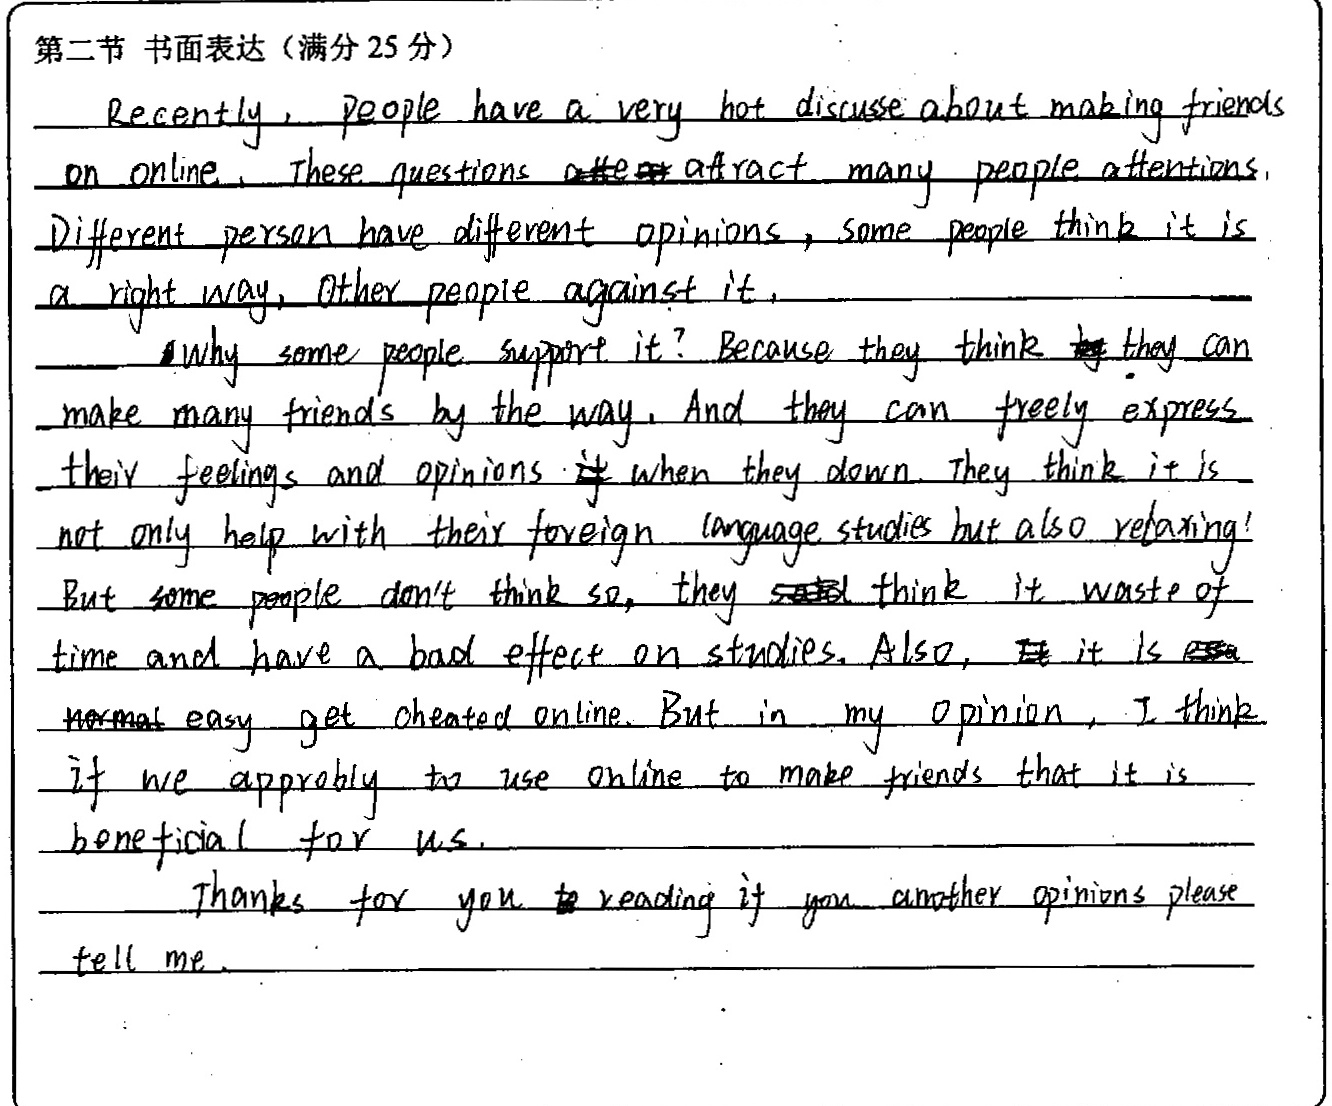 第二节 书面表达（满分 25 分）
Recently, people have a very hot discusse about making friends
on online. These questions attract many people attentions.
Different person have different opinions, some people think it is
a right way, Other people against it.
Why some people support it? Because they think they can
make many friends by the way. And they can freely express
their feelings and opinions when they down. They think it is
not only help with their foreign language studies but also relaxing!
But some people don't think so, they think it waste of
time and have a bad effect on studies. Also, it is
easy get cheated online. But in my opinion, I think
if we approbly to use online to make friends that it is
beneficial for us.
Thanks for you reading if you another opinions please
tell me.